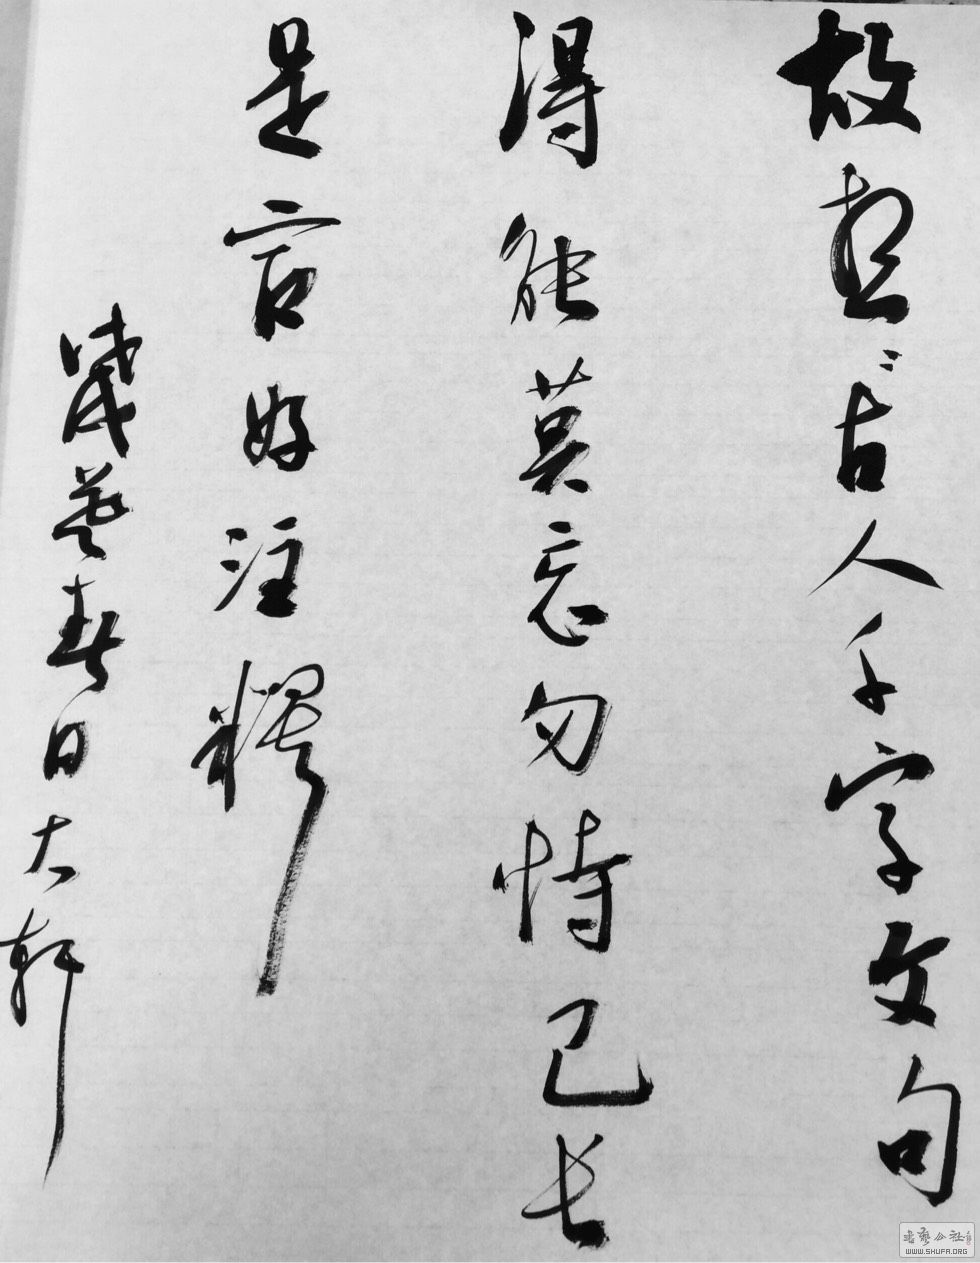 故想古人千字文句
得能莫忘勿恃己长
是言好注釋
春日大軒
書藝公社
WWW.SHUFA.ORG